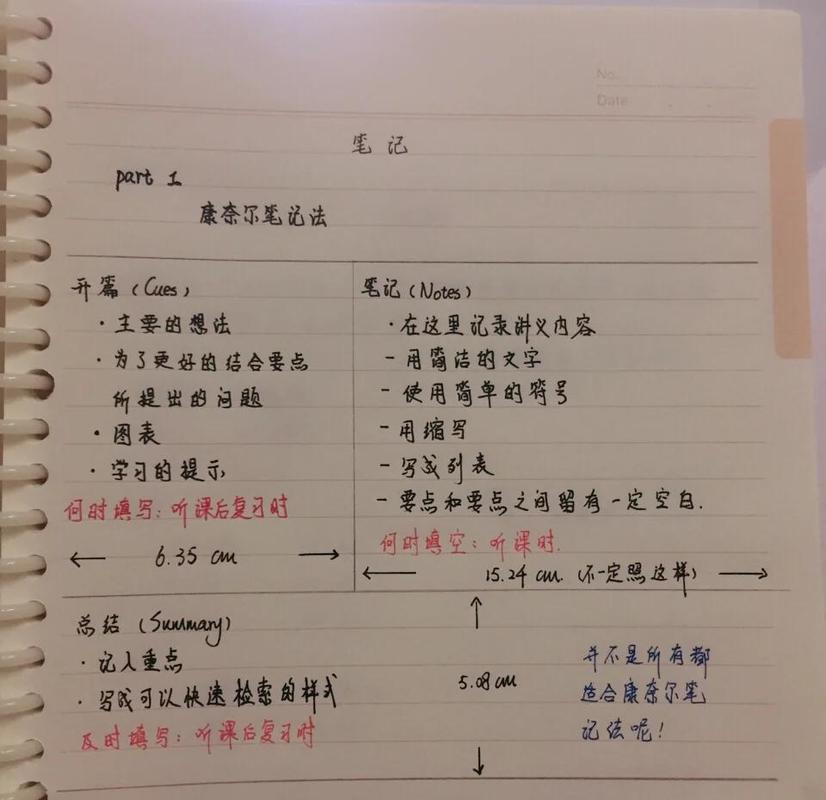 No.
Date
笔记
part 1
康奈尔笔记法
开篇(Cues)
·主要的想法
·为了更好的结合要点
所提出的问题
·图表
·学习的提示
何时填写:听课后复习时
← 6.35 cm →
笔记(Notes)
·在这里记录讲义内容
-用简洁的文字
-使用简单的符号
-用缩写
-写成列表
-要点和要点之间留有一定空白.
何时填空:听课时.
← 15.24 cm.(不一定照这样) →
总结(Summary)
·记入重点
·写成可以快速检索的样式
及时填写:听课后复习时
↑
5.08 cm
↓
并不是所有都
适合康奈尔笔
记法呢!